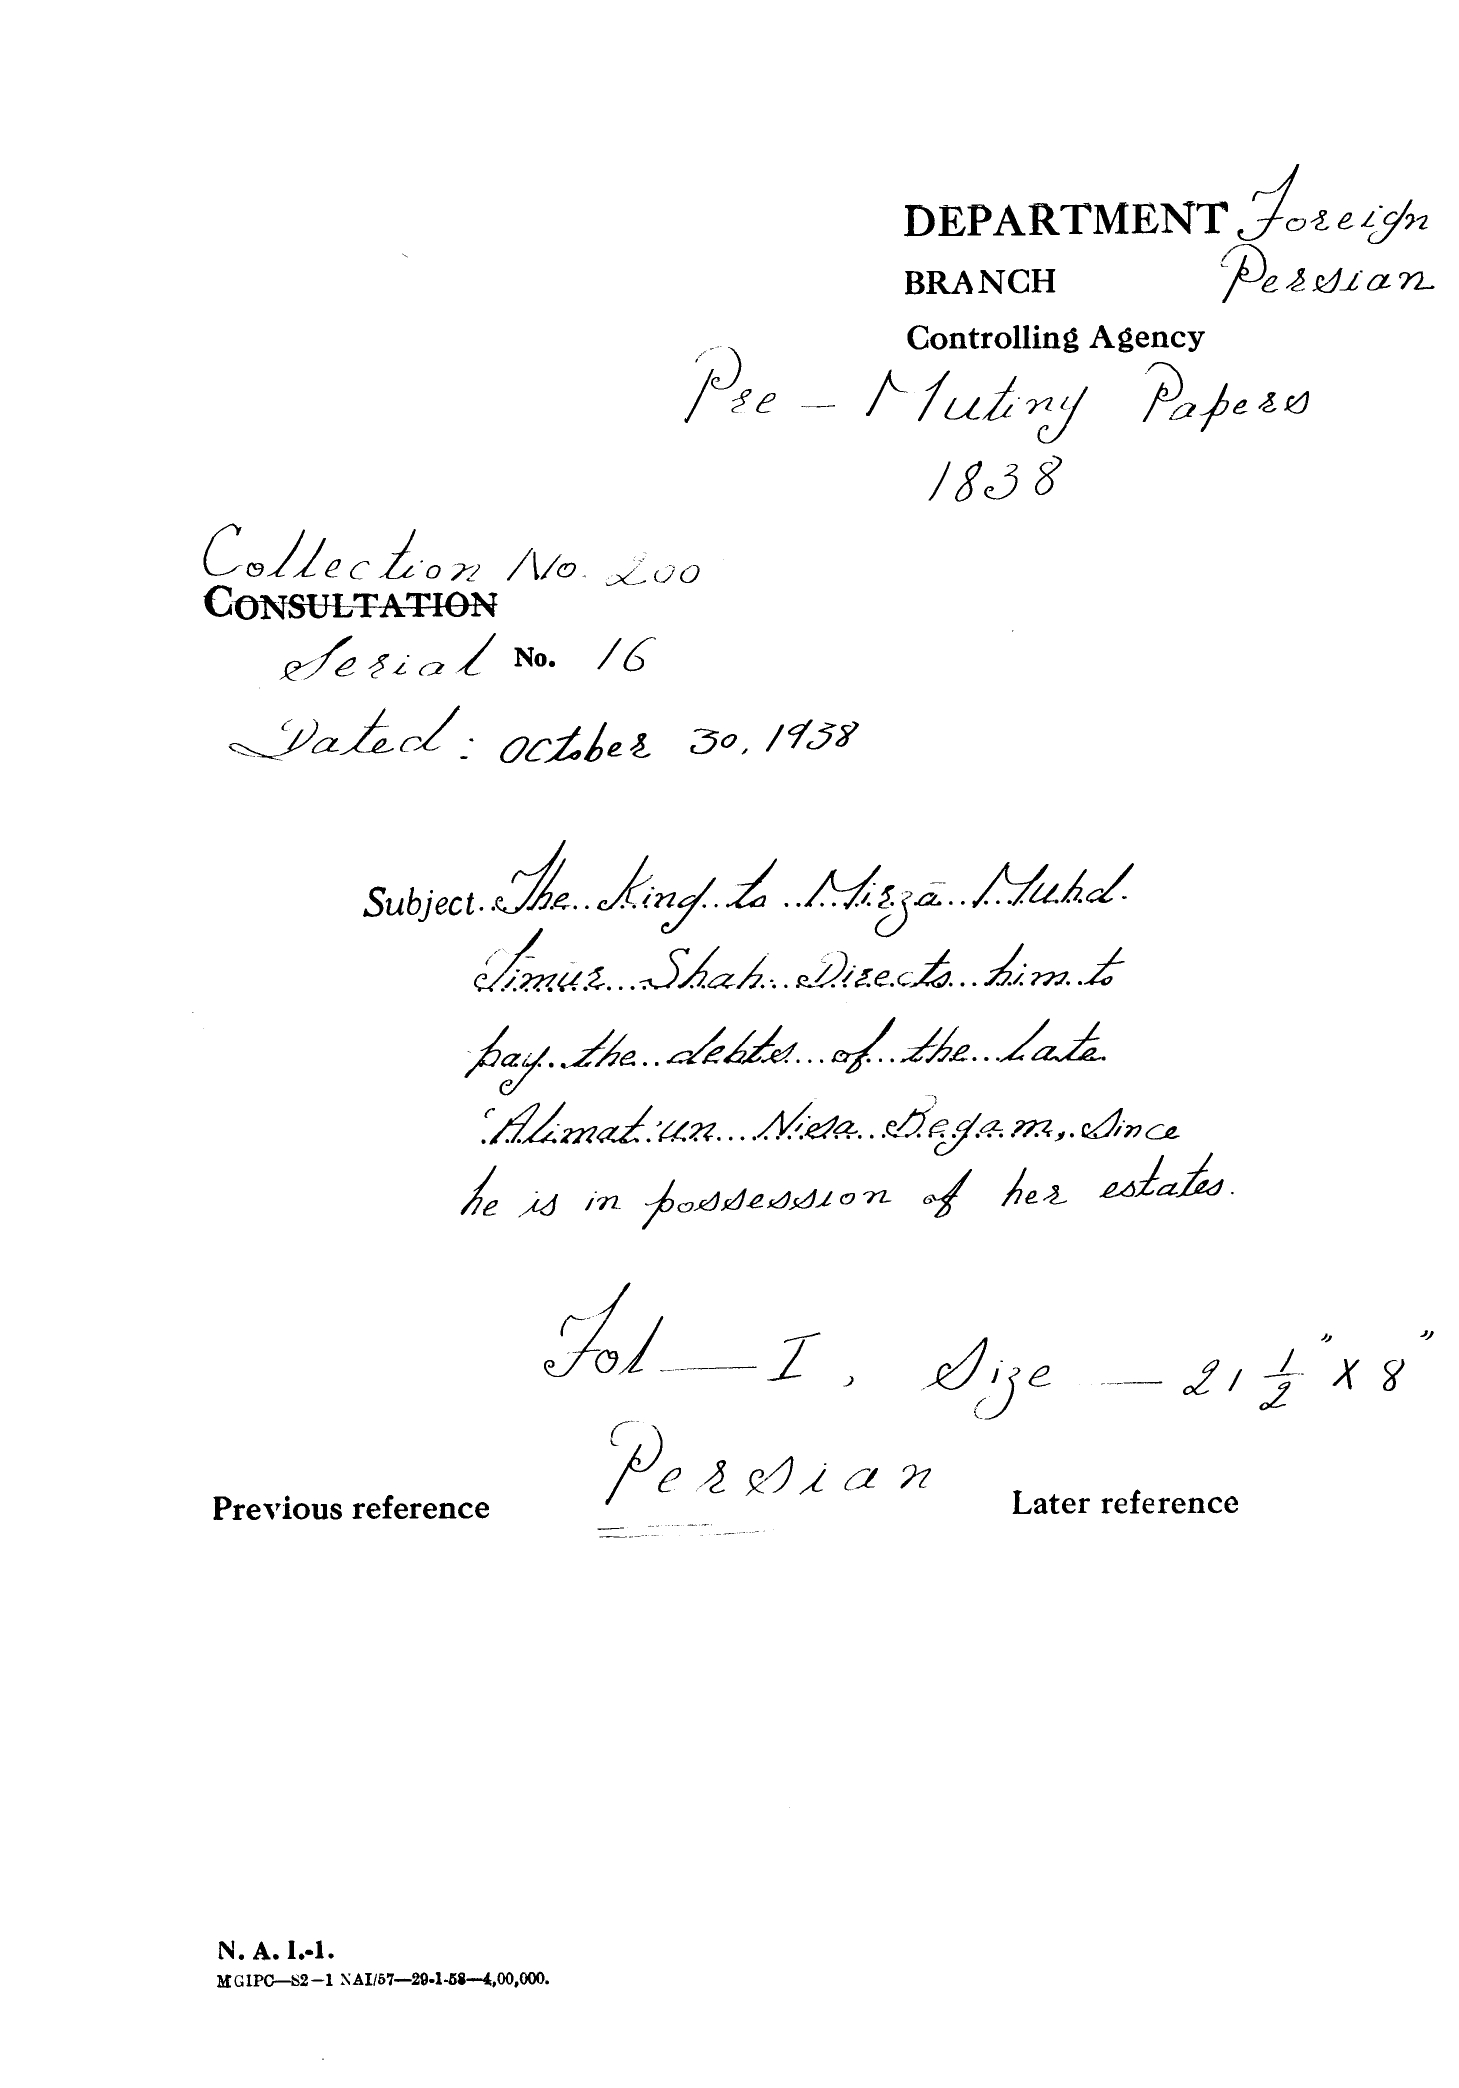 DEPARTMENT Foreign
BRANCH Persian
Controlling Agency
Pre - Mutiny Papers
1838
Collection No. 200
CONSULTATION
Serial No. 16
Dated : October 30, 1938
Subject. The King to Mirzā Muhd.
Timūr Shah. Directs him to
pay the debts of the late
'Alimat'un Nisa Begam, since
he is in possession of her estates.
Fol — I, Size — 21 1/2" X 8"
Persian
Previous reference Later reference
N. A. I.-1.
MGIPC—S2—1 NAI/57—29-1-58—4,00,000.